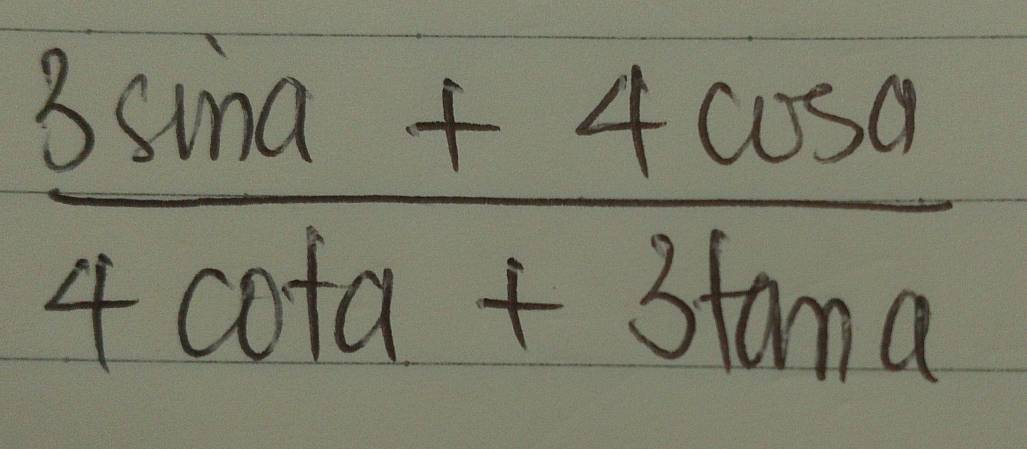 3 sina + 4 cosa
4 cota + 3tan a